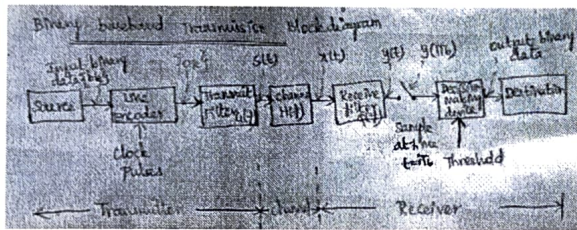 Binary baseband Transmission Block diagram
Input binary data {bk}
{ak}
S(t)
x(t)
y(t)
y(iTb)
output binary data
Source
Line encoder
Transmit Filter
Channel H(f)
Receive filter
Decision making device
Destination
Clock pulses
Sample at time t=iTb
Threshold
Transmitter
channel
Receiver